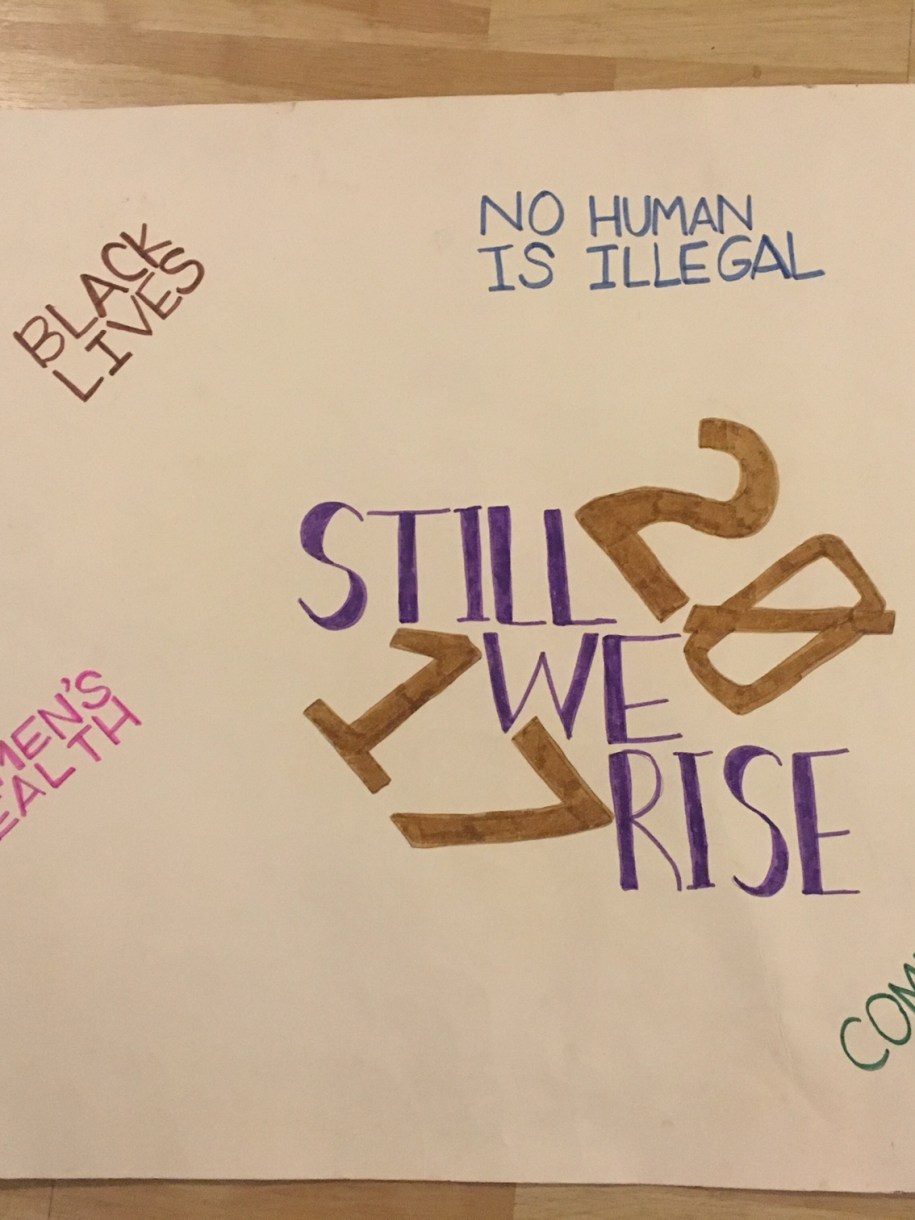 NO HUMAN
IS ILLEGAL
BLACK
LIVES
20
STILL
WE
RISE
17
MEN'S
EALTH
COM